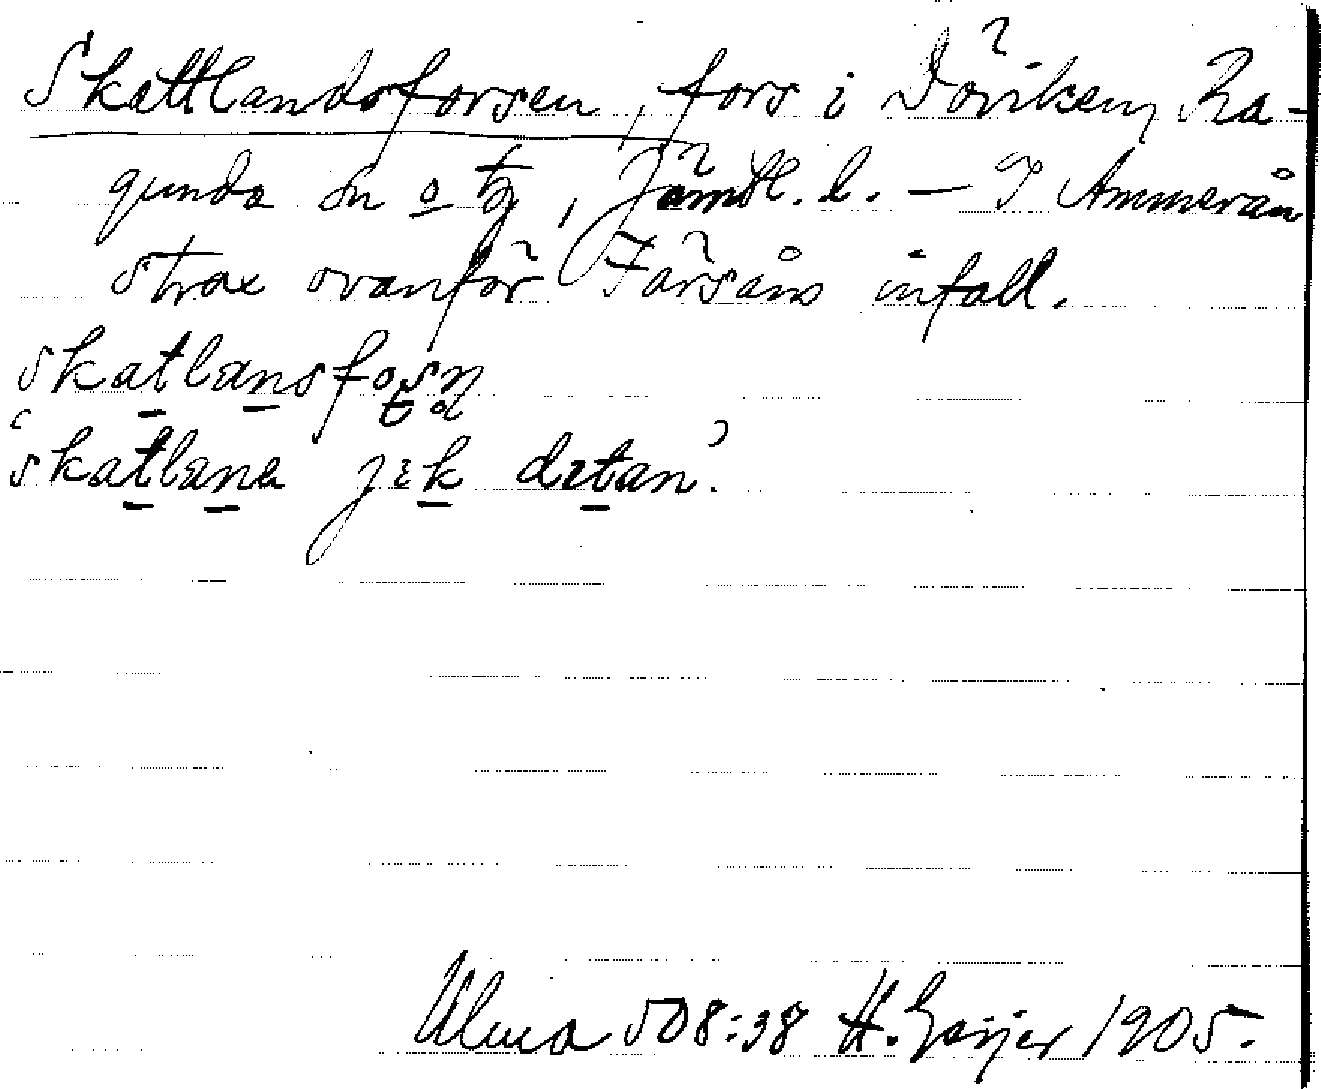 Skattlandsforsen, fors i Döviken, Ra-
gunda sn o tg, Jämtl. l. — I Ammerån
strax ovanför Färsåns infall.
skatlansfoʂn̥
skatlana jek ditan.
Ulma 508:38 H. Geijer 1905.